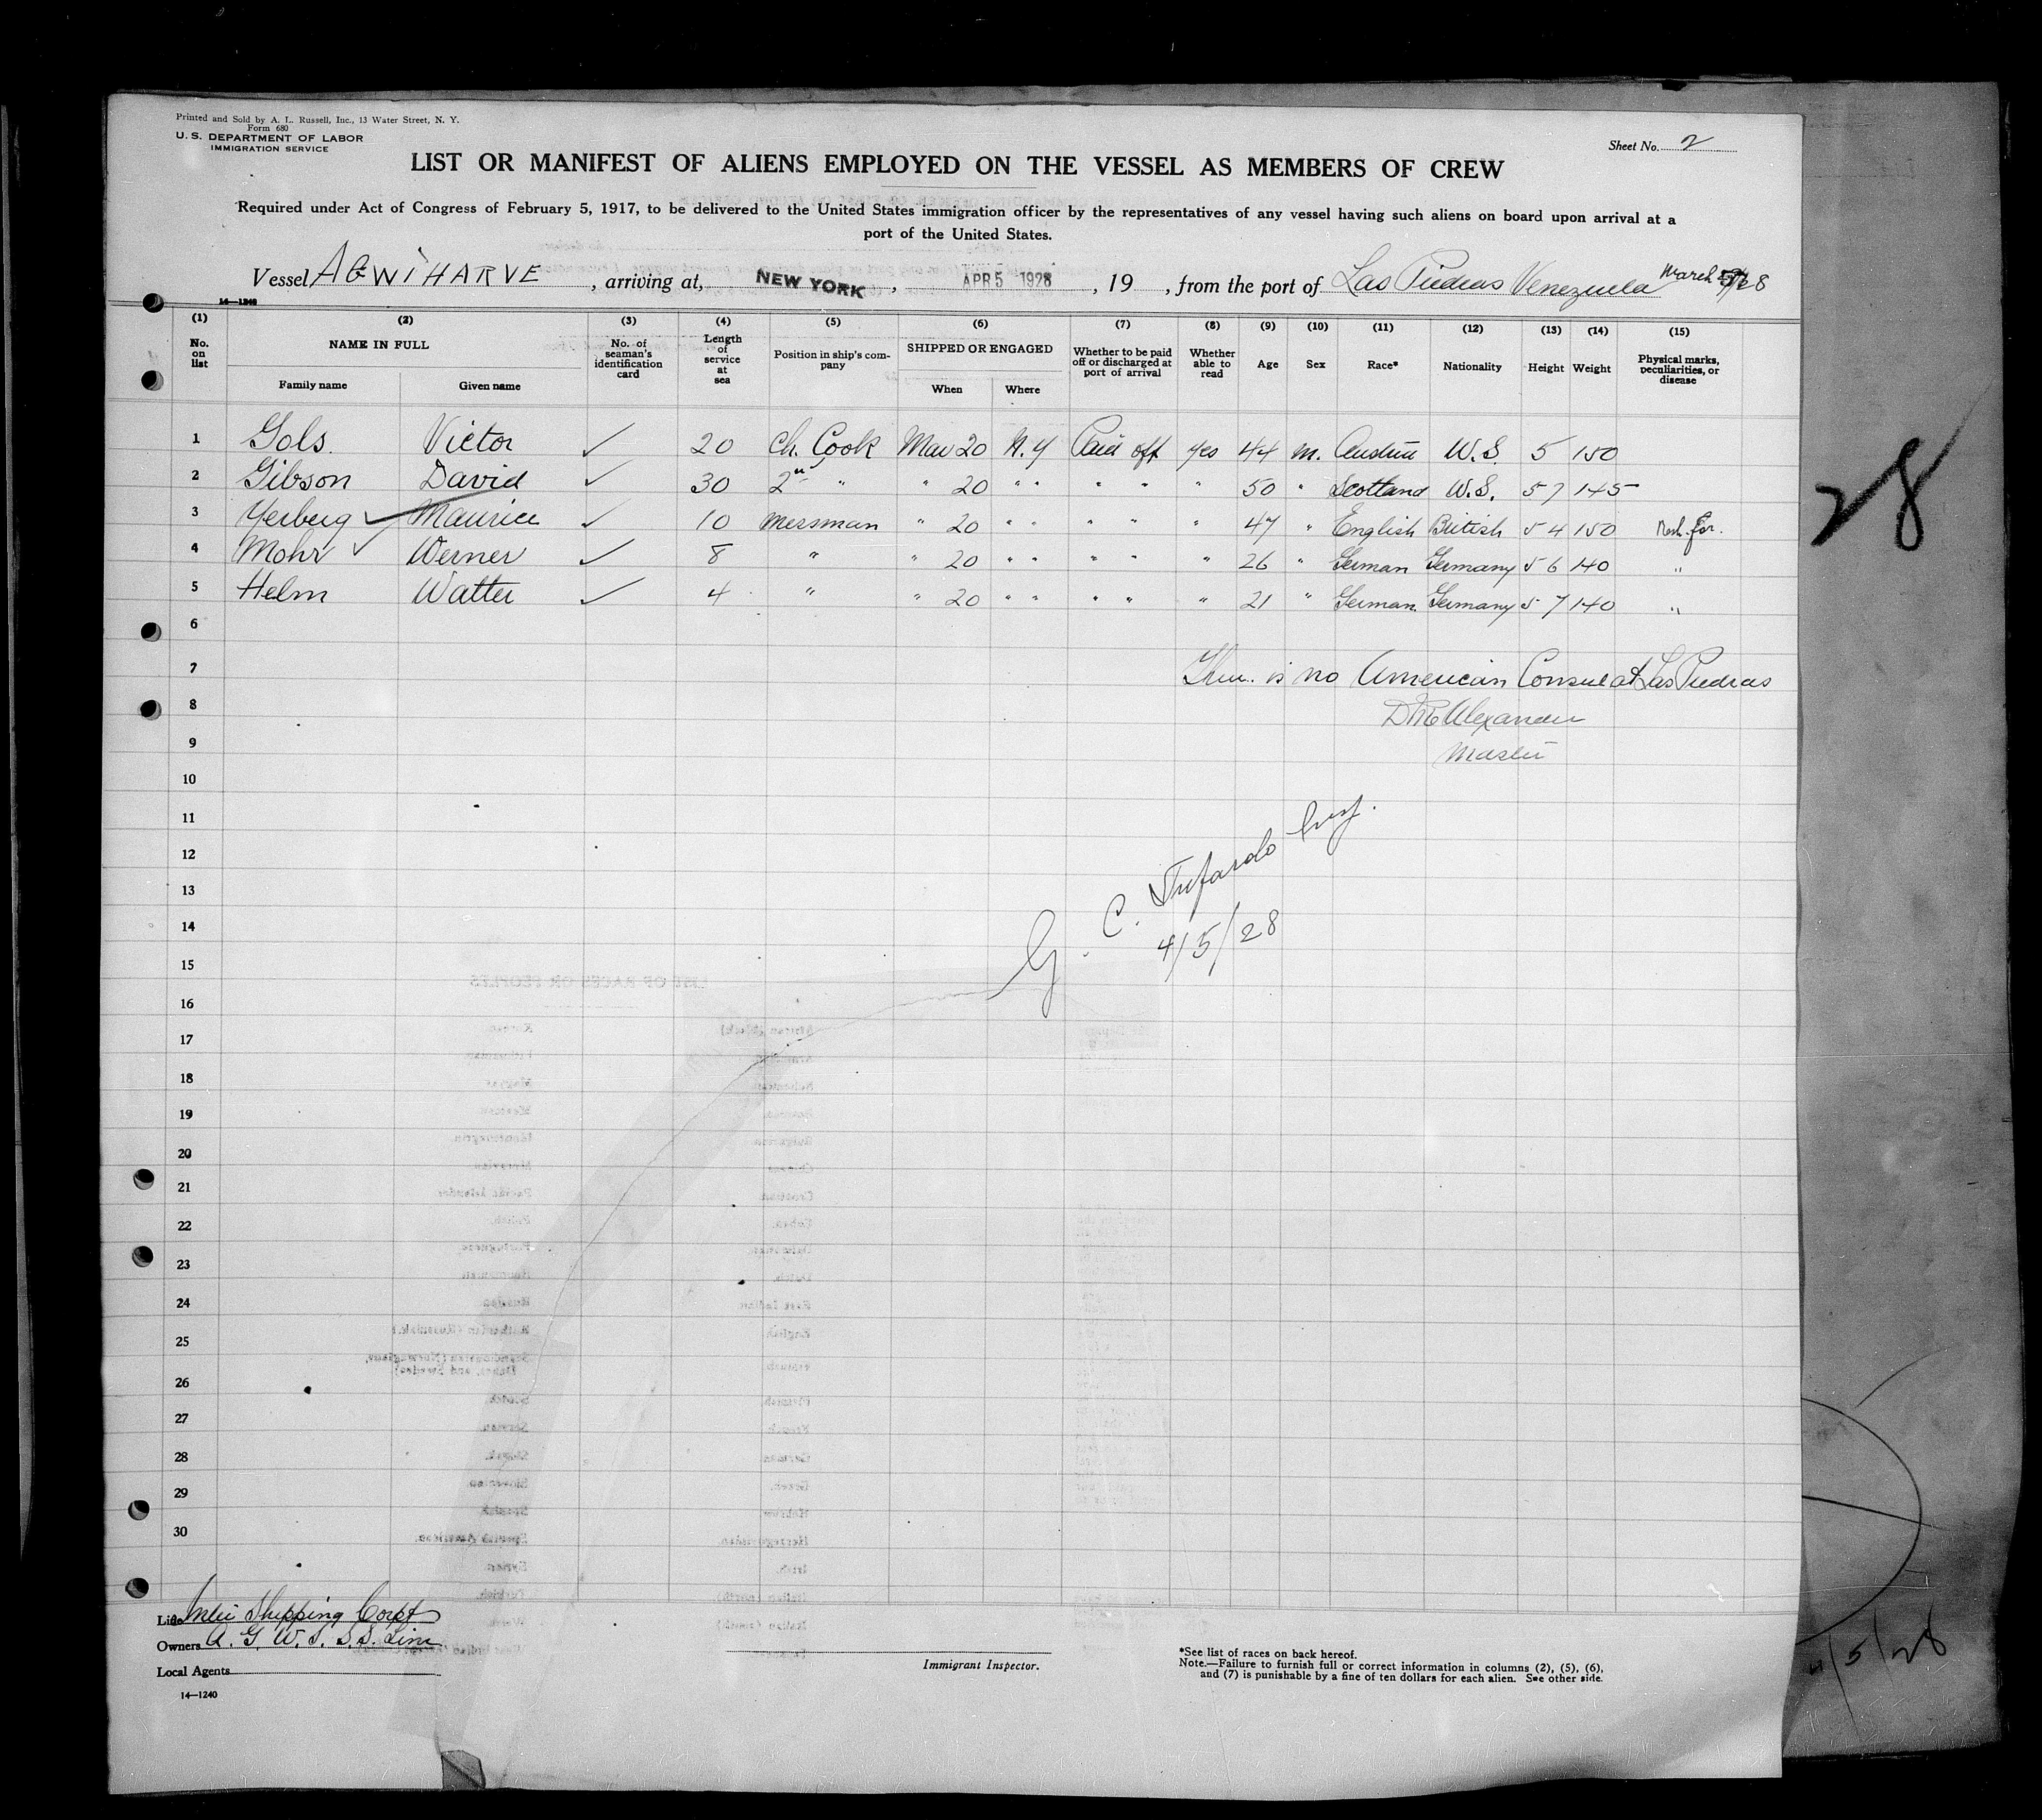 Printed and Sold by A. L. Russell, Inc., 13 Water Street, N. Y.
Form 680
U. S. DEPARTMENT OF LABOR
IMMIGRATION SERVICE
Sheet No. 2
LIST OR MANIFEST OF ALIENS EMPLOYED ON THE VESSEL AS MEMBERS OF CREW
Required under Act of Congress of February 5, 1917, to be delivered to the United States immigration officer by the representatives of any vessel having such aliens on board upon arrival at a
port of the United States.
Vessel AGWIHARVE, arriving at, NEW YORK, APR 5 1928, 19 , from the port of Las Piedras Venezuela March 28
14—1240
(1) (2) (3) (4) (5) (6) (7) (8) (9) (10) (11) (12) (13) (14) (15)
No. on list NAME IN FULL Family name Given name No. of seaman's identification card Length of service at sea Position in ship's company SHIPPED OR ENGAGED When Where Whether to be paid off or discharged at port of arrival Whether able to read Age Sex Race* Nationality Height Weight Physical marks, peculiarities, or disease
1 Gols. Victor ✓ 20 Ch. Cook Mar 20 N.Y Paid off yes 44 m. Austria W.S. 5 150
2 Gibson David ✓ 30 2nd " " 20 " " " " " 50 " Scotland W.S. 5 7 145
3 Yerberg ✓ Maurice ✓ 10 messman " 20 " " " " " 47 " English British 5 4 150
4 Mohr ✓ Werner ✓ 8 " " 20 " " " " " 26 " German Germany 5 6 140 "
5 Helm Walter ✓ 4 " " 20 " " " " " 21 " German. Germany 5 7 140 "
6
7 There is no American Consul at Las Piedras
8 Alexander
9 Master
10
11
12
13
14
G. C. Tufardo Insp.
4/5/28
15
16
17
18
19
20
21
22
23
24
25
26
27
28
29
30
28
Line Shipping Corpt
Owners A. G. W. I. S.S. Line
Local Agents
14—1240
Immigrant Inspector.
*See list of races on back hereof.
Note.—Failure to furnish full or correct information in columns (2), (5), (6),
and (7) is punishable by a fine of ten dollars for each alien. See other side.
4/5/28